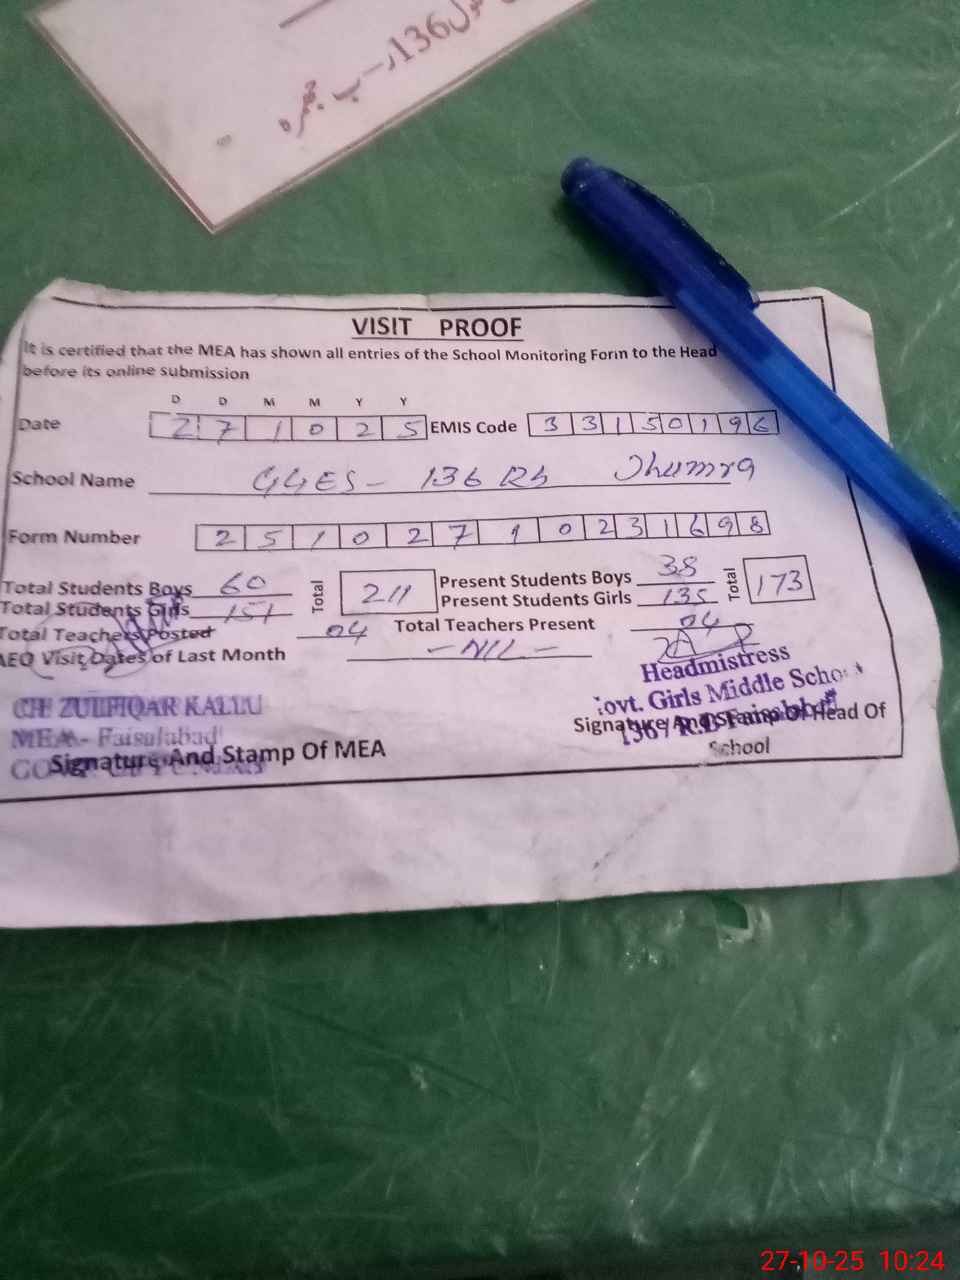 136ر-ب جھمرہ
VISIT PROOF
It is certified that the MEA has shown all entries of the School Monitoring Form to the Head
before its online submission
D D M M Y Y
Date 2 7 1 0 2 5 EMIS Code 3 3 1 5 0 1 9 6
School Name GGES - 136 Rb Jhumra
Form Number 2 5 1 0 2 7 1 0 2 3 1 6 9 8
Total Students Boys 60 Total 211 Present Students Boys 38 Total 173
Total Students Girls 151 Present Students Girls 135
Total Teachers Posted 04 Total Teachers Present 04
AEO Visit Dates of Last Month - NIL -
Headmistress
Govt. Girls Middle School
136/ R.B Faisalabad
CH ZULFIQAR KALLU
MEA - Faisalabad
Signature And Stamp Of MEA
Signature And Stamp Of Head Of
School
27-10-25 10:24